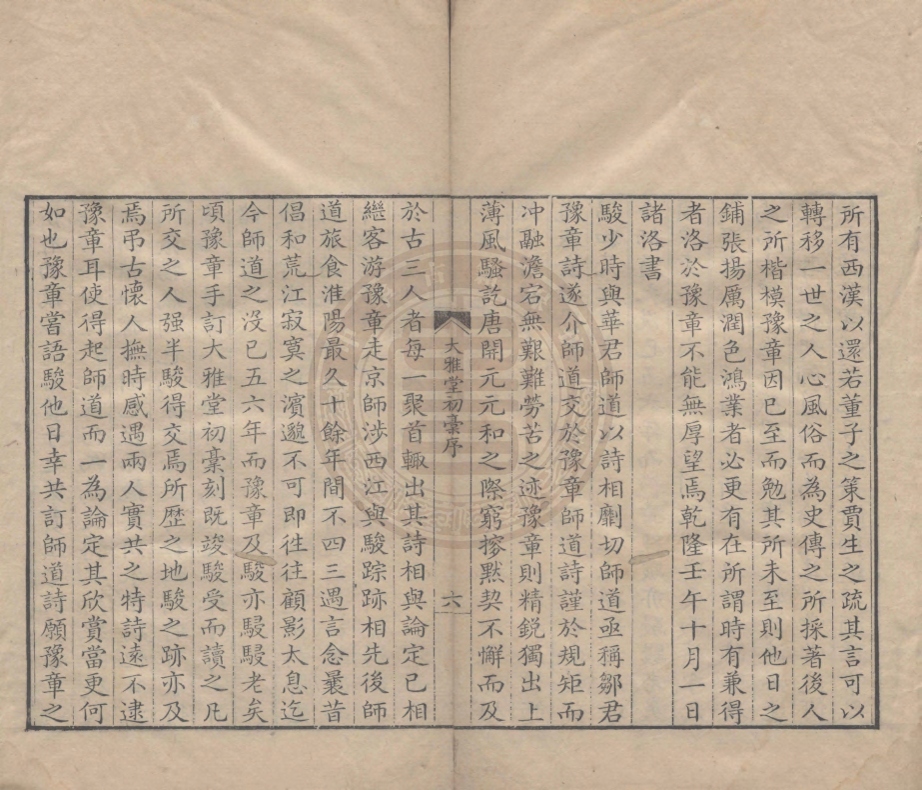 所有西漢以還若董子之策賈生之疏其言可以
轉移一世之人心風俗而為史傳之所採著後人
之所楷模豫章因已至而勉其所未至則他日之
鋪張揚厲潤色鴻業者必更有在所謂時有兼得
者洛於豫章不能無厚望焉乾隆壬午十月一日
諸洛書
駿少時與華君師道以詩相劘切師道亟稱鄒君
豫章詩遂介師道交於豫章師道詩謹於規矩而
冲融澹宕無艱難勞苦之迹豫章則精銳獨出上
薄風騷訖唐開元元和之際窮搜默契不懈而及
大雅堂初稾序
六
於古三人者每一聚首輙出其詩相與論定已相
繼客游豫章走京師涉西江與駿踪跡相先後師
道旅食淮陽最久十餘年間不四三遇言念曩昔
倡和荒江寂寞之濱邈不可即徃往顧影太息迄
今師道之没已五六年而豫章及駿亦駸駸老矣
頃豫章手訂大雅堂初稾刻既竣駿受而讀之凡
所交之人强半駿得交焉所歴之地駿之跡亦及
焉弔古懷人撫時感遇兩人實共之特詩遠不逮
豫章耳使得起師道而一為論定其欣賞當更何
如也豫章嘗語駿他日幸共訂師道詩願豫章之